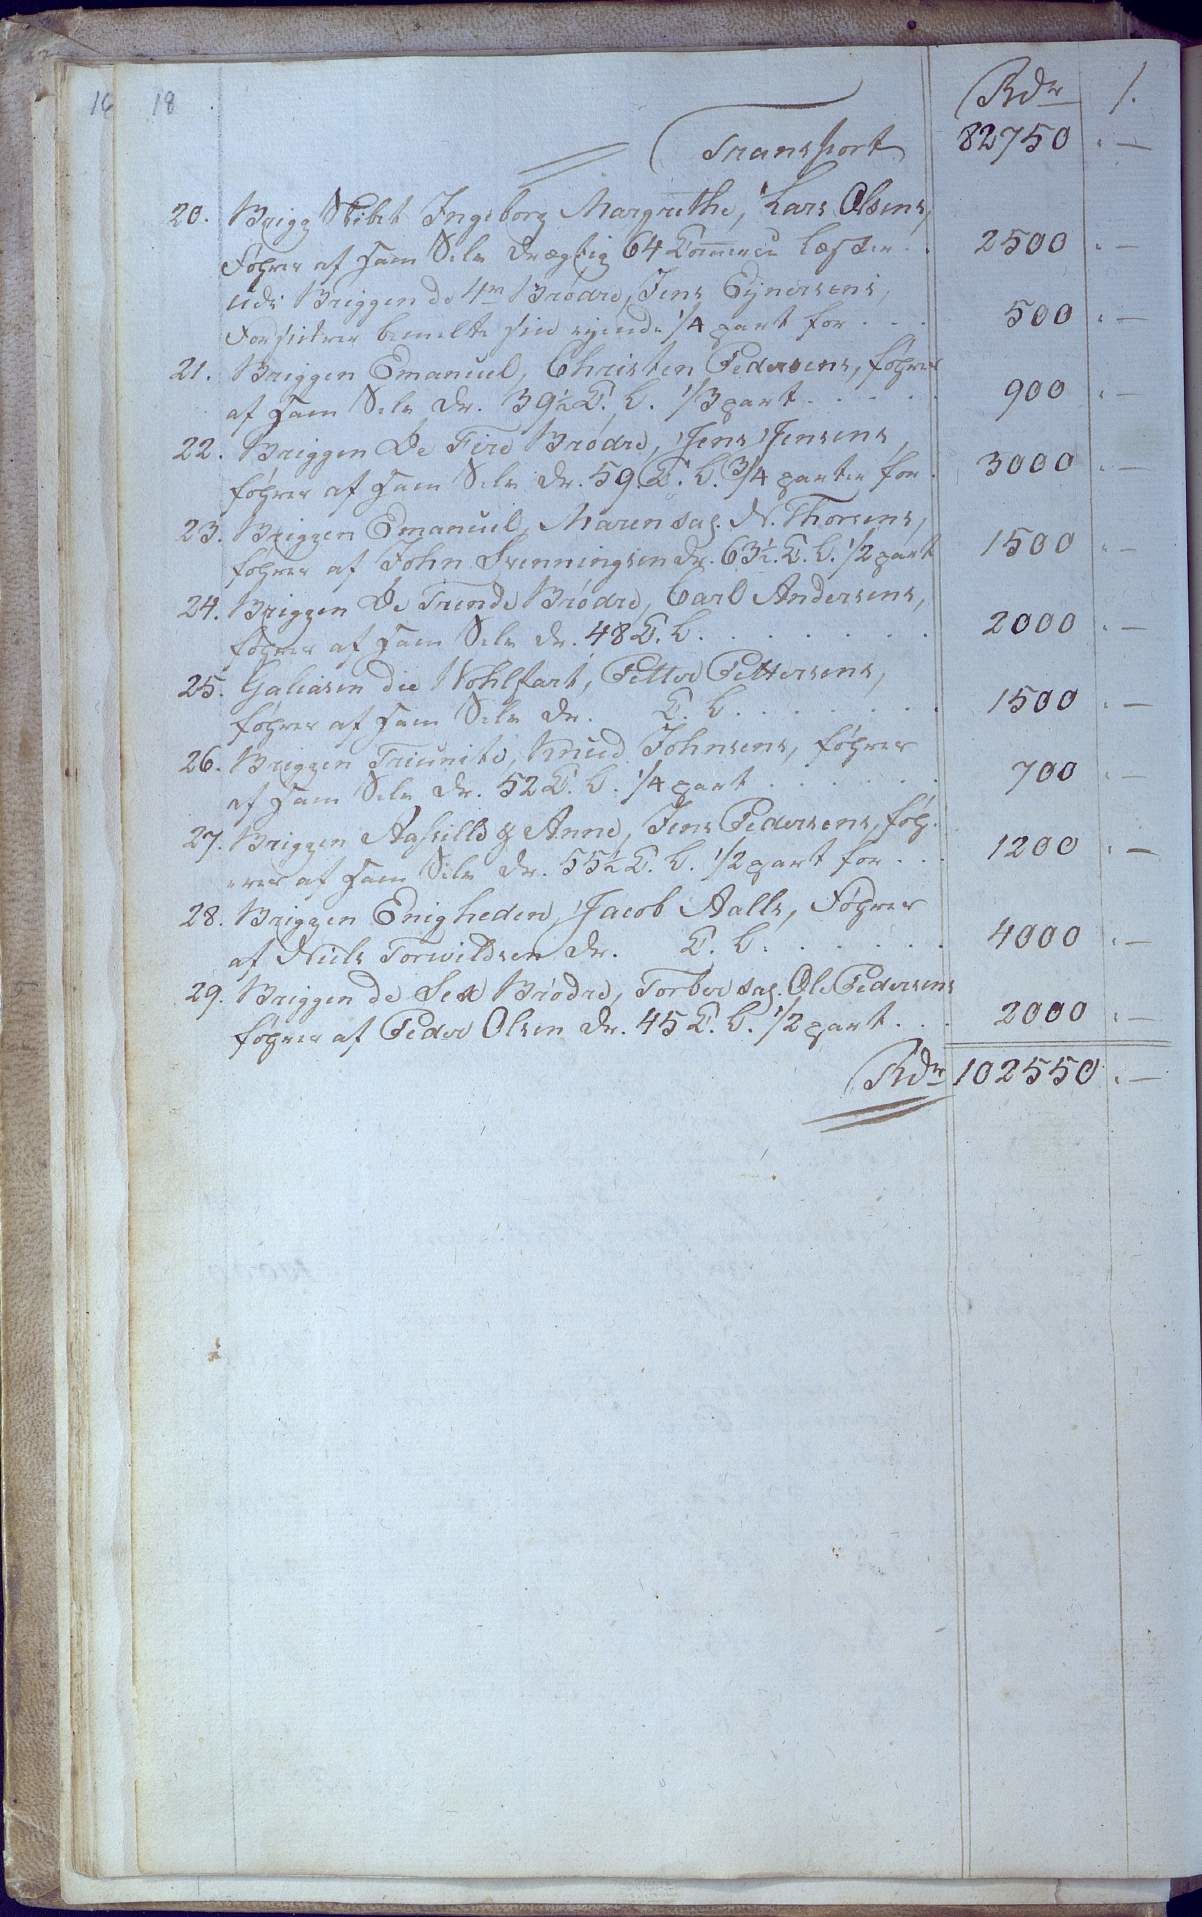 16 18
Rdr /.
Transport 82750 . —
20. Brigg Skibet Ingeborg Margrethe, Lars Olsens,
Føhrer af ham Selv Drægtig 64 Commerce Læster . . 2500 . —
udi Briggen de 4re Brødre, Jens Eynersens,
Forsikrer bemelte sin eyende 1/4 part for . . . 500 . —
21. Briggen Emanuel, Christen Pedersens, føhrer
af ham Selv Dr. 39½ C. L. 1/3 part . . . . . 900 . —
22. Briggen De Fire Brødre, Jens Jensens,
føhrer af ham Selv Dr. 59. C. L. 3/4 parter for . 3000 . —
23. Briggen Emanuel, Maren sal. N. Thorsens,
føhrer af John Svenningsen Dr. 63½. C. L. 1/2 part 1500 . —
24. Briggen De Trende Brødre, Carl Andersens,
føhrer af ham Selv Dr. 48 C. L. . . . . . . . 2000 . —
25. Galeasen die Wohlfart, Petter Pettersens,
føhrer af ham Selv Dr. C. L. . . . . . . . 1500 . —
26. Briggen Triunito, Knud Johnsens, føhrer
af ham Selv Dr. 52 C. L. 1/4 part . . . . . . 700 . —
27. Briggen Aassille & Anne, Jens Pedersens, føh-
rer af ham Selv Dr. 55½ C. L. 1/2 part for . . . 1200 . —
28. Briggen Enigheden, Jacob Aalls, Føhrer
af Niels Torvildsen Dr. C. L. . . . . . . . 4000 . —
29. Briggen de Sex Brødre, Torber sal. Ole Pedersens
føhrer af Peder Olsen Dr. 45 C. L. 1/2 part . . . 2000 . —
Rdr 102550 . —